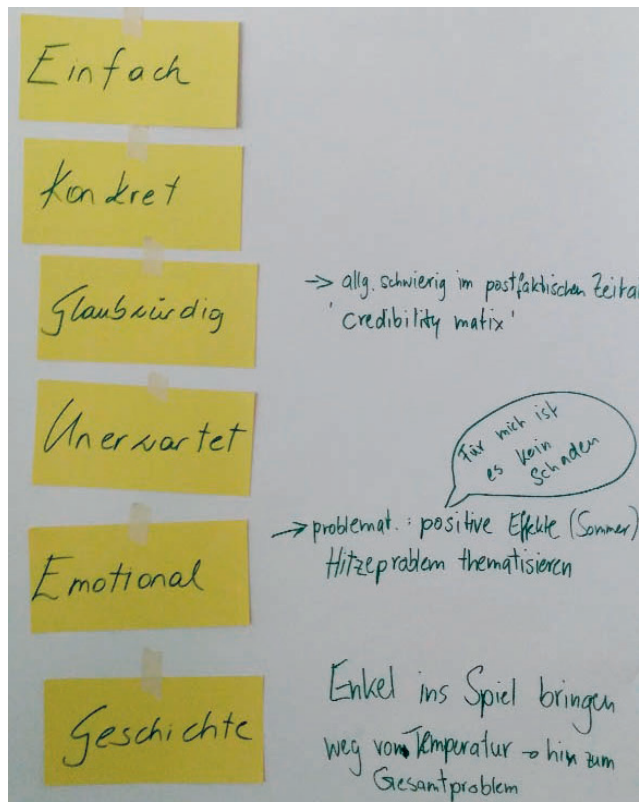 Einfach
Konkret
Glaubwürdig
→ allg. schwierig im postfaktischen Zeital
'credibility matix'
Unerwartet
Für mich ist
es kein
Schaden
Emotional
→ problemat.: positive Effekte (Sommer)
Hitzeproblem thematisieren
Geschichte
Enkel ins Spiel bringen
weg von Temperatur → hin zum
Gesamtproblem